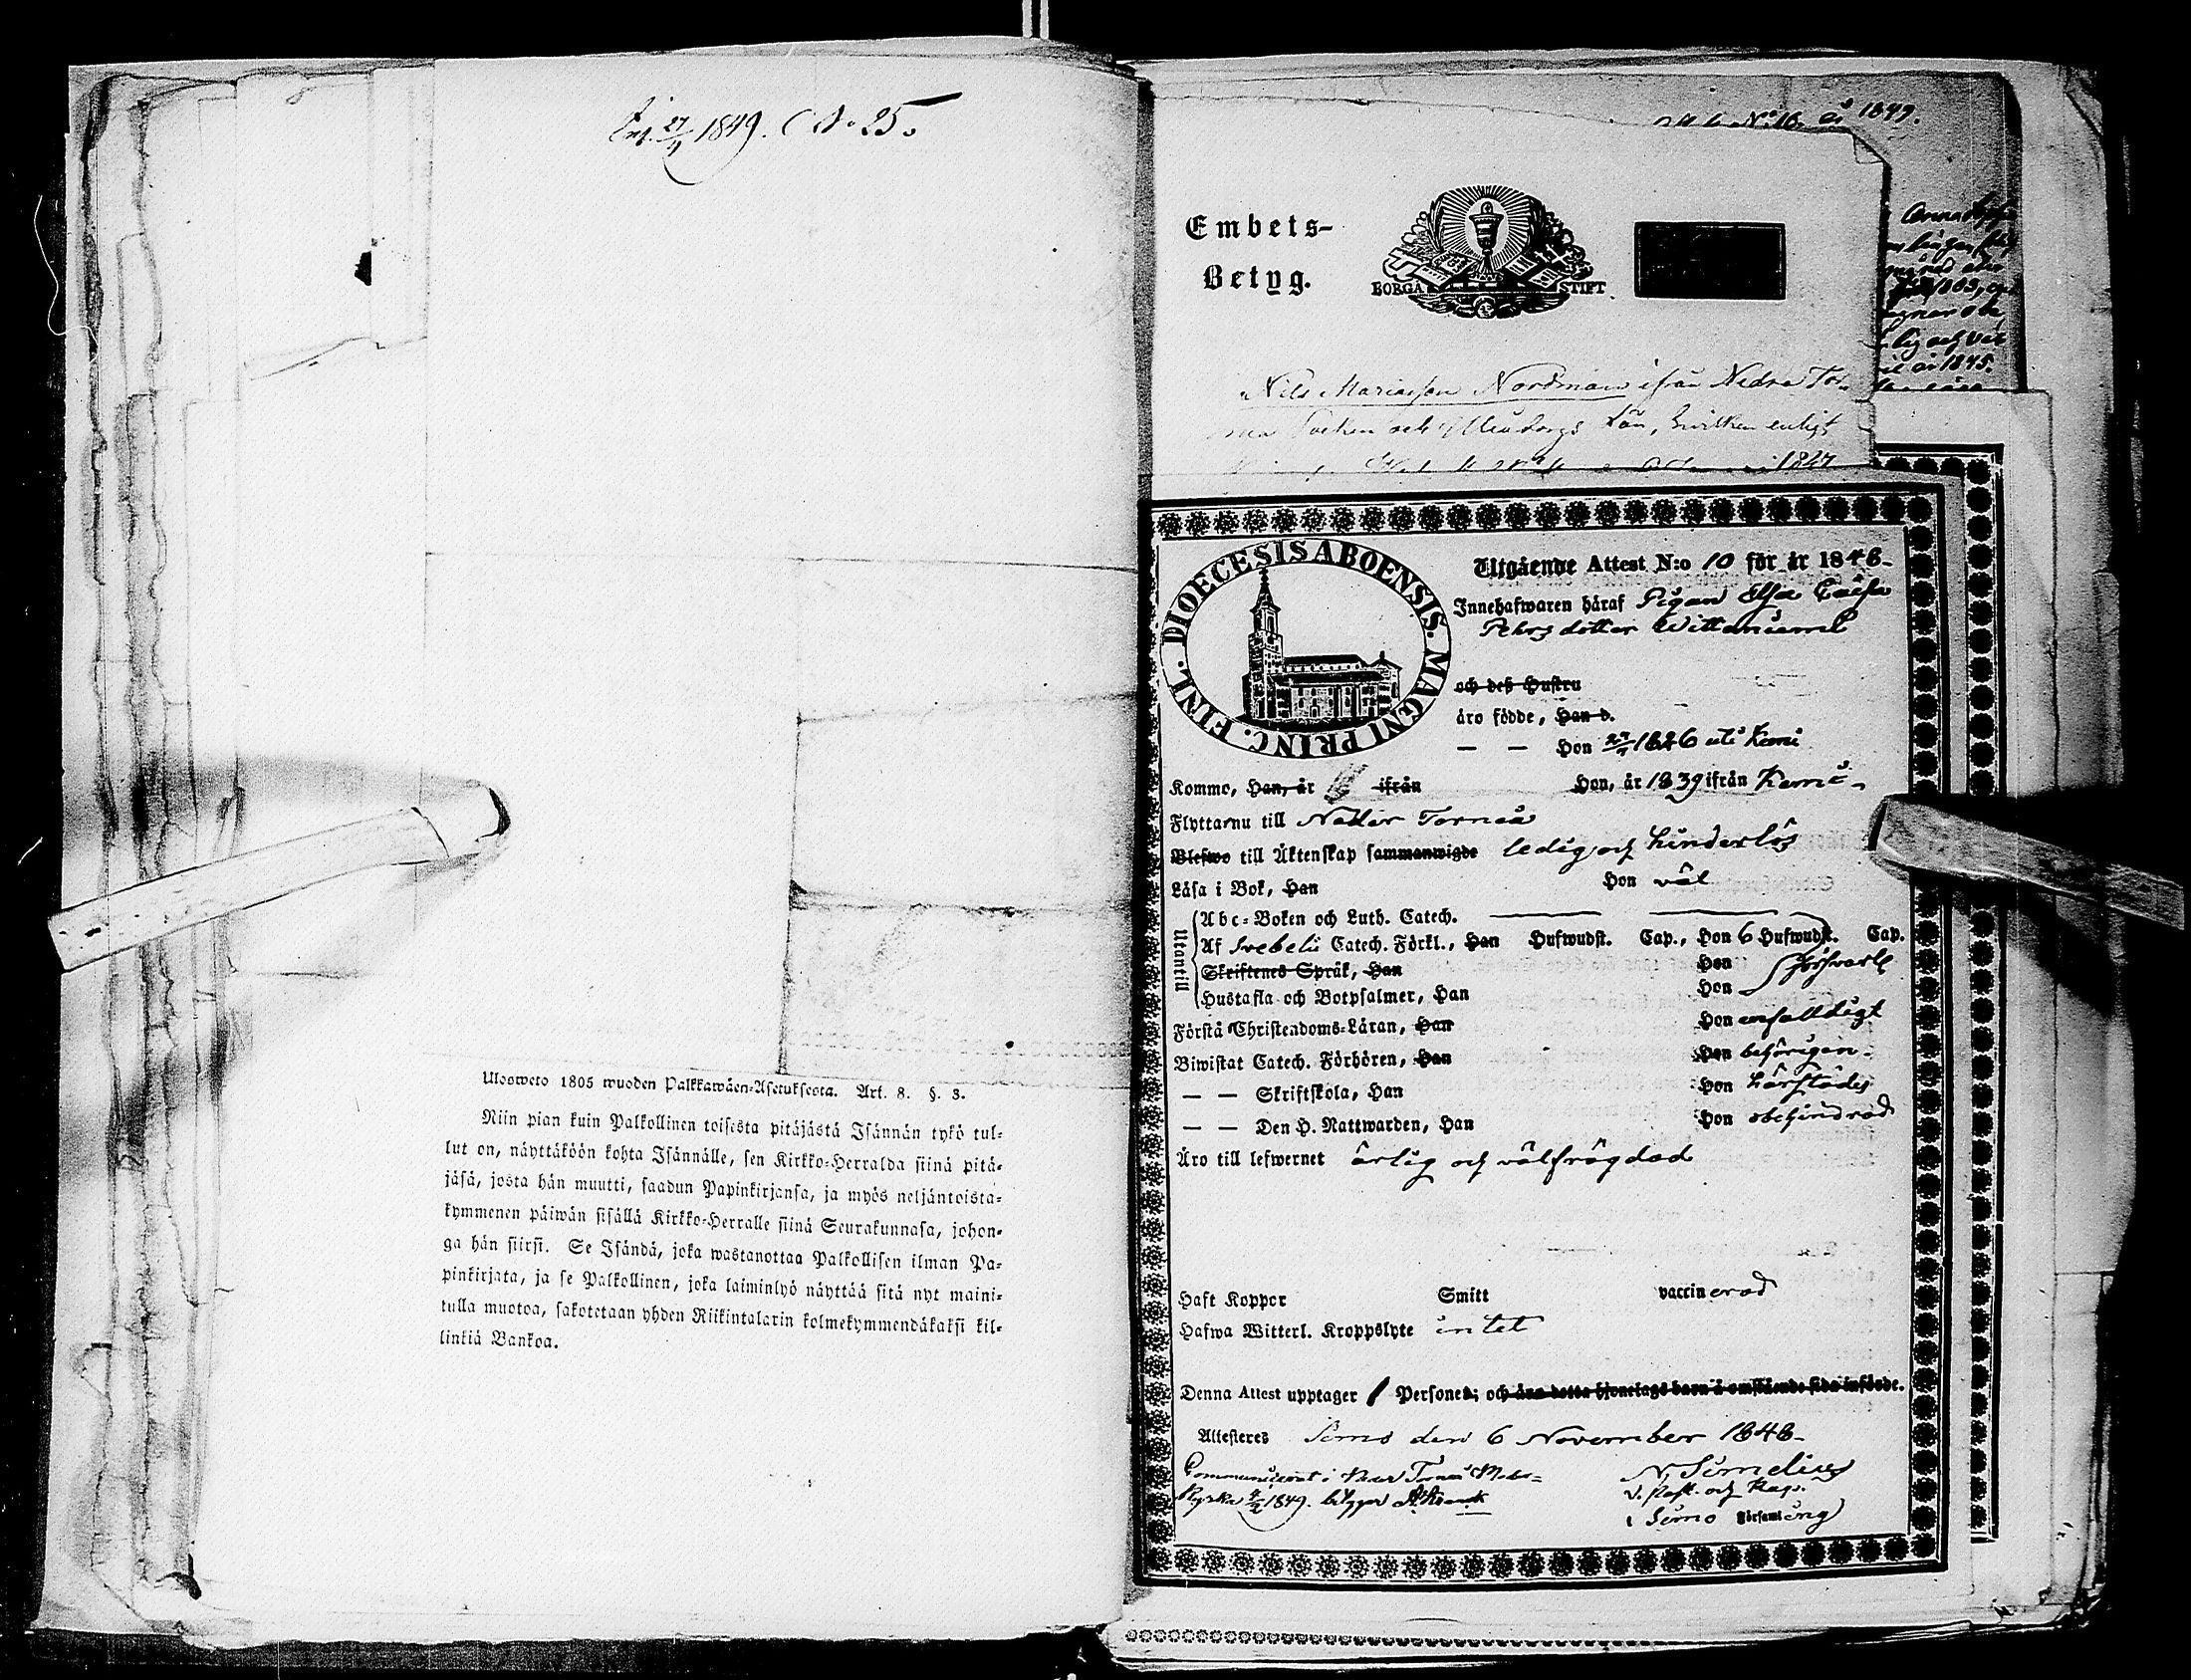 Inf. 27/4 1849. (No 25.
Ulosweto 1805 wuoden Palkkawäen-Asetuksesta. Art. 8. §. 3.
Niin pian kuin Palkollinen toisesta pitäjästä Isännän tykö tul-
lut on, näyttäköön kohta Isännälle, sen Kirkko-Herralda siinä pitä-
jäsä, josta hän muutti, saadun Papinkirjansa, ja myös neljäntoista-
kymmenen päiwän sisällä Kirkko-Herralle siinä Seurakunnasa, johon-
ga hän siirsi. Se Isändä, joka wastanottaa Palkollisen ilman Pa-
pinkirjata, ja se Palkollinen, joka laiminlyö näyttää sitä nyt maini-
tulla muotoa, sakotetaan yhden Riikintalarin kolmekymmendäkaksi kil-
linkiä Bankoa.
No 16. år 1849.
Embets-
Betyg.
BORGÅ STIFT
Nils Mariasson Nordman ifrån Nedra Tor-
Socken och Uleåborgs Län, hwilken enligt
1847
ar 1845.
DIOECESIS ABOENSIS. MAGNI PRINC. FINL.
Utgående Attest N:o 10 för år 1848.
Innehafwaren häraf Pigan Elsa Caisa
Pehrsdotter Wittaniemi
och deß Hustru
äro födde, Han d.
— — Hon 27/4 1826 uti Kemi
Komme, Han, år ifrån Hon, år 1839 ifrån Kemi
Flyttar nu till Neder Torneå
Blefwo till Äktenskap sammanwigde ledig och hinderlös
Läsa i Bok, Han Hon väl
Utantill
Abc-Boken och Luth. Catech.
Af Svebelii Catech. Förkl., Han Hufwudst. Cap., Hon 6 Hufwudst. Cap.
Skriftenes Språk, Han Hon försvarl
Hustafla och Botpsalmer, Han Hon
Förstå Christendoms-Läran, Han Hon enfaldigt
Biwistat Catech. Förhören, Han Hon behörigen
— — Skriftskola, Han Hon härstädes
— — Den H. Nattwarden, Han Hon obehindrad
Äro till lefwernet ärlig och välfrägdad
Haft Koppor Smitt vaccinerad
Hafwa Witterl. Kroppslyte intet
Denna Attest upptager 1 Personer; och äro detta hjonelags barn å omstående sida införde.
Attesteres Simo den 6 November 1848.
Communicerat i Neder Torneå Moder=
Kyrka 4/2 1849. betygar
N Simelius
V. Past. och Kap.
i Simo Församling